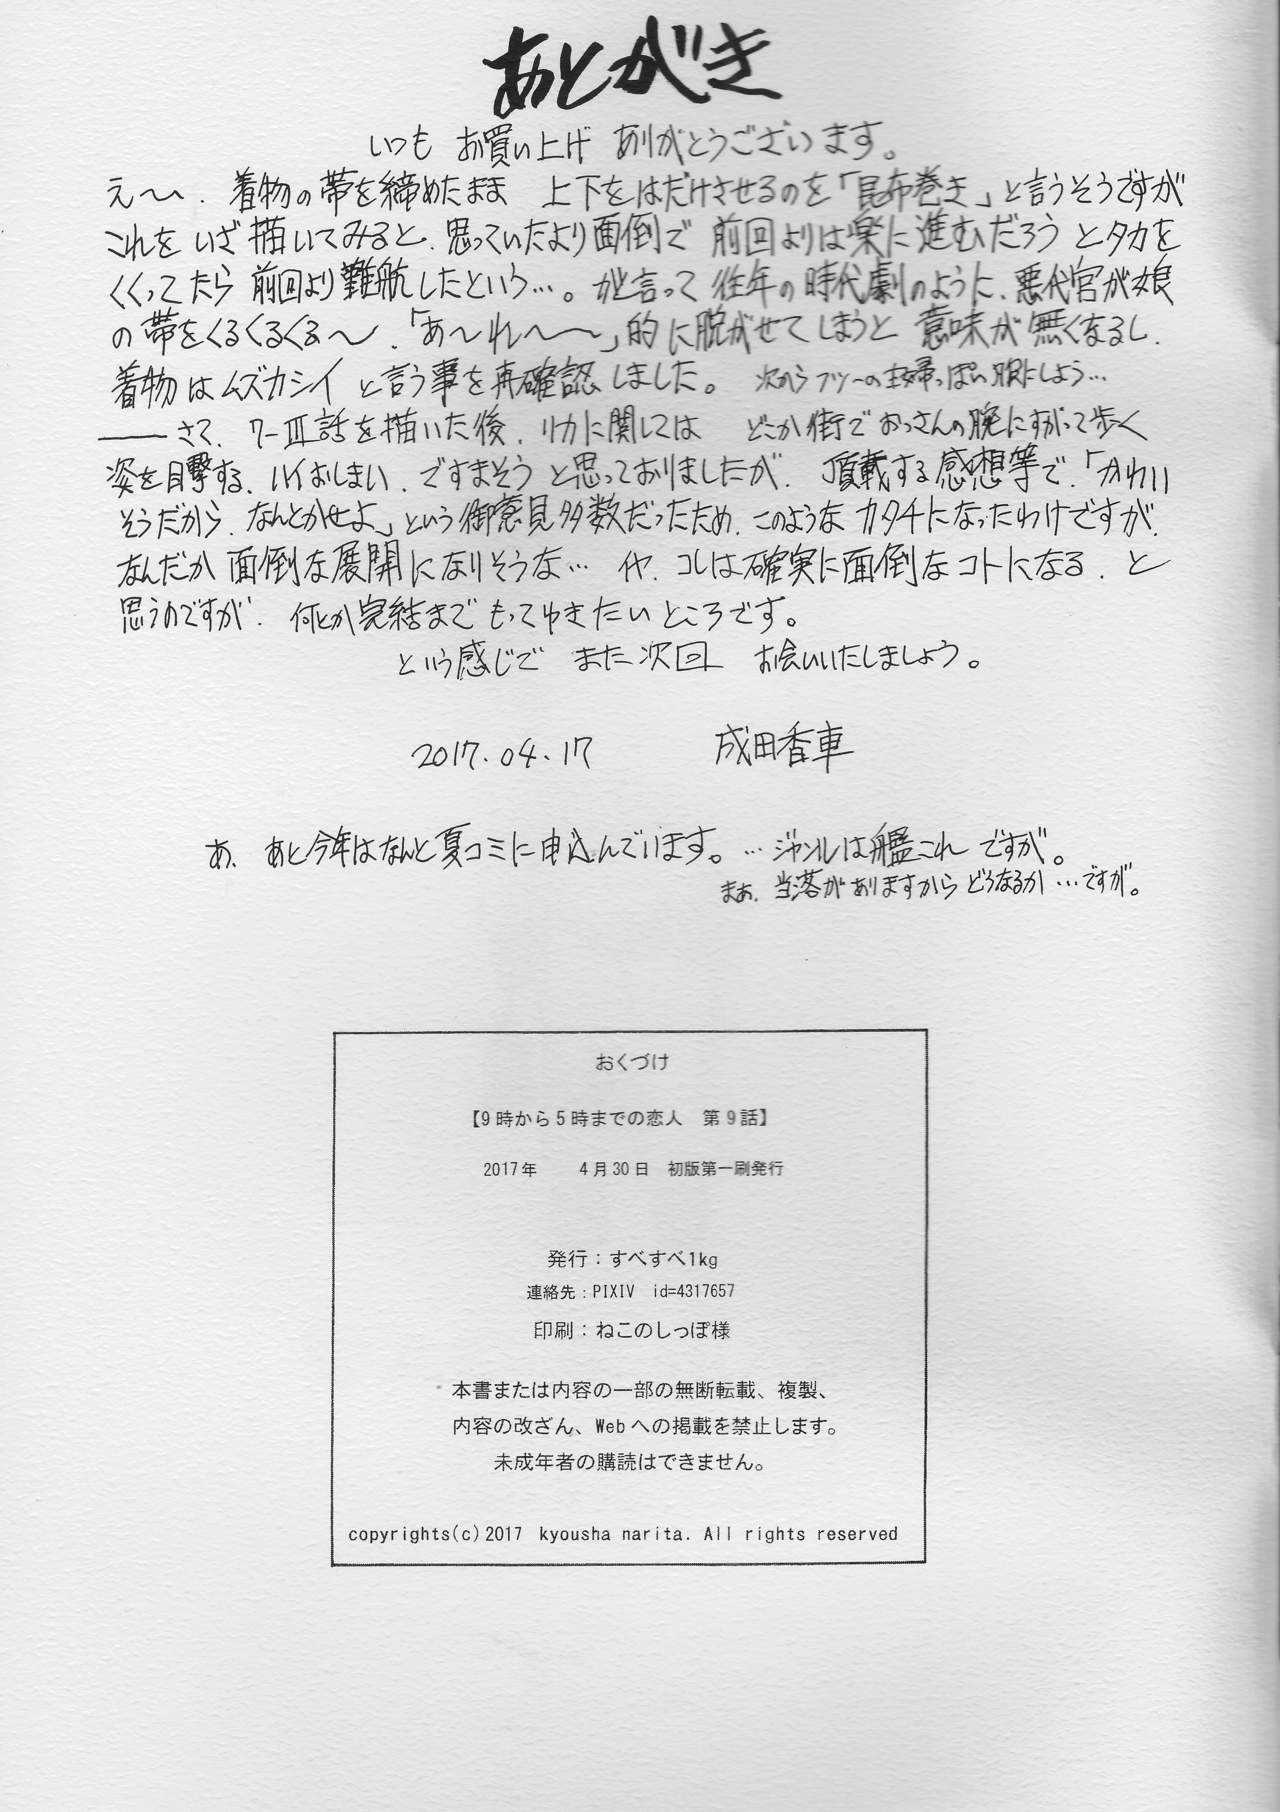 あとがき
いつも お買い上げ ありがとうございます。
え〜〜、着物の帯を締めたまま 上下をはだけさせるのを「昆布巻き」と言うそうですが
これを いざ 描いてみると、思っていたより面倒で 前回よりは楽に進むだろう とタカを
くくってたら 前回より難航したという…。がと言って 往年の時代劇のように、悪代官が娘
の帯をくるくるくる〜、「あ〜れ〜〜」的に脱がせてしまうと 意味が無くなるし、
着物はムズカシイ と言う事を再確認しました。 次からフツーの主婦っぽい服にしよう…
―――さて、7-Ⅲ話を描いた後、リカに関しては どこか街でおっさんの腕にすがって歩く
姿を目撃する、ハイおしまい、ですまそう と思っておりましたが、頂戴する感想等で、「かわい
そうだから、なんとかせよ」という御意見多数だったため、このようなカタチになったわけですが、
なんだか 面倒な展開になりそうな… イヤ、コレは確実に面倒なコトになる、と
思うのですが、何とか完結まで もってゆきたいところです。
という感じで また次回 お会いいたしましょう。
2017.04.17 成田香車
あ、あと今年はなんと夏コミに申込んでいます。…ジャンルは艦これ ですが。
まぁ、当落がありますから どうなるか…ですが。
おくづけ
【9時から5時までの恋人　第9話】
2017年　4月30日　初版第一刷発行
発行：すべすべ1kg
連絡先：PIXIV　id=4317657
印刷：ねこのしっぽ様
本書または内容の一部の無断転載、複製、
内容の改ざん、Webへの掲載を禁止します。
未成年者の購読はできません。
copyrights(c)2017 kyousha narita. All rights reserved